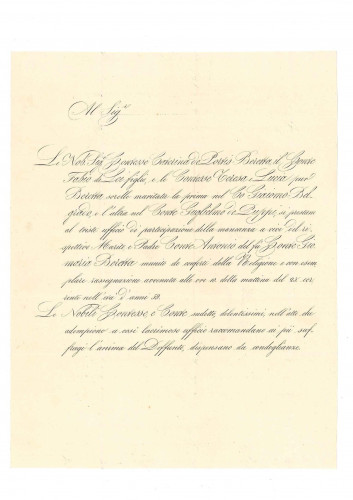 Al Sig.r
La Nob. Sig. Contessa Caterina di Porto Beretta, il Conte
Fabio di Lei figlio, e le Contesse Teresa e Lucia pur
Beretta sorelle maritate la prima nel Co. Giacomo Bel
grado, e l'altra nel Conte Guglielmo de Puppi, si prestano
al triste ufficio di partecipazione della mancanza a vivi del ri
spettivo Marito e Padre Conte Antonio del fu Conte Gio
maria Beretta munito de conforti della Religione e con esem
plare rassegnazione avvenuta alle ore della mattina del cor
rente nell'età d'anni
La Nobile Contessa e Conte sudetti dolentissimi, nell'atto che
adempiono a così lacrimoso ufficio raccomandano ai pii suf
fragi l'anima del Deffunto, dispensano da condoglianze.